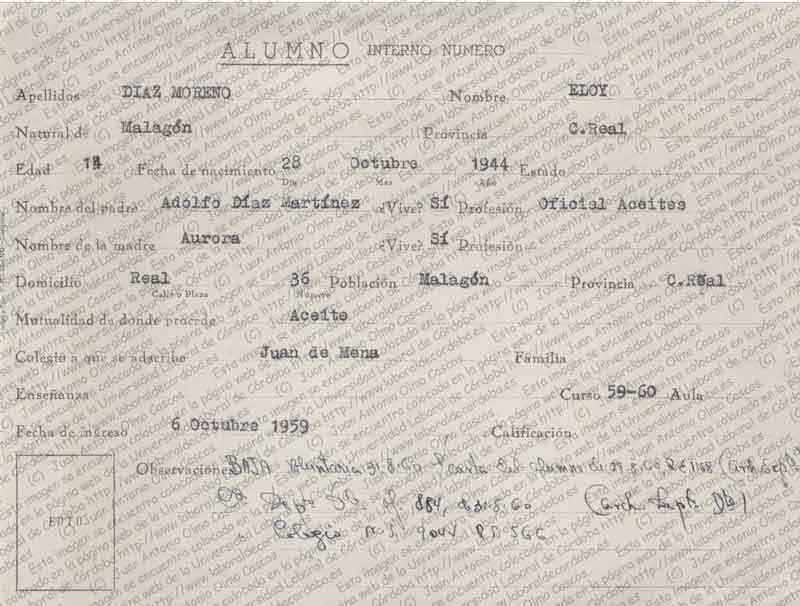 ALUMNO INTERNO NUMERO
Apellidos DIAZ MORENO Nombre ELOY
Natural de Malagón Provincia C.Real
Edad 14 Fecha de nacimiento 28 Octubre 1944 Estado
Día Mes Año
Nombre del padre Adolfo Díaz Martínez ¿Vive? Sí Profesión Oficial Aceites
Nombre de la madre Aurora ¿Vive? Sí Profesión
Domicilio Real 36 Población Malagón Provincia C.Real
Calle o Plaza Número
Mutualidad de donde procede Aceite
Colegio a que se adscribe Juan de Mena Familia
Enseñanza Curso 59-60 Aula
Fecha de ingreso 6 Octubre 1959 Calificación
Observaciones BAJA Voluntaria 31.8.60 carta del alumno de
884, 31.8.60
Colegio
FOTO
(C) Juan Antonio Olmo Cascos
Esta imagen se encuentra colocada en la página web de la Universidad Laboral de Córdoba http://www.laboraldecordoba.es